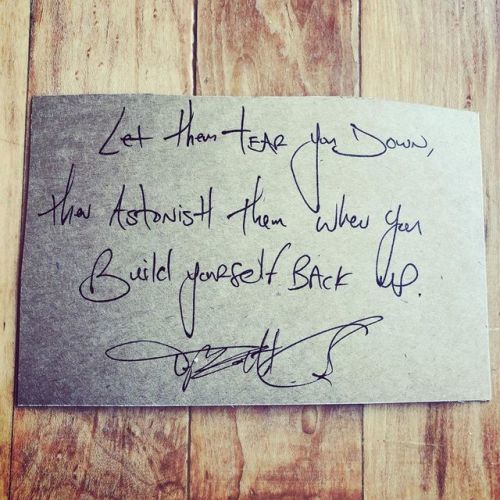 Let them TEAR you Down,
then Astonish them when you
Build yourself Back up.